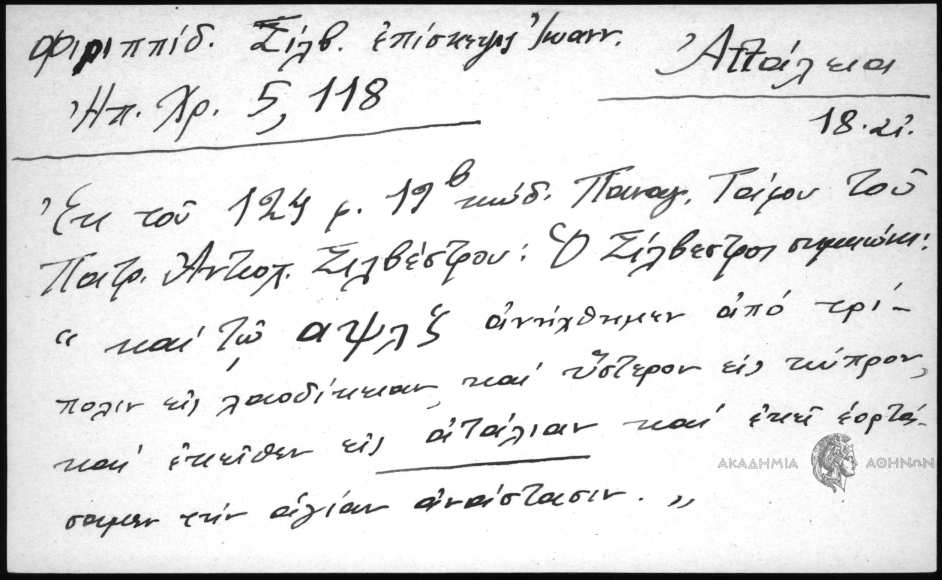 Φιλιππίδ. Σίλβ. ἐπίσκεψις Ἰωανν.
Ἠπ. Χρ. 5, 118
Ἀττάλεια
18. αἰ.
Ἐκ τοῦ 124 φ. 19β κώδ. Παναγ. Τάφου τοῦ
Πατρ. Ἀντιοχ. Σιλβέστρου: Ὁ Σίλβεστρος σημειώνει:
“ καί τῷ αψλζ ἀνήχθημεν ἀπό τρί-
πολιν εἰς λαοδίκειαν, καί ὕστερον εἰς κύπρον,
καί ἐκεῖθεν εἰς ἀτάλιαν καί ἐκεῖ ἑορτά-
σαμεν τήν ἁγίαν ἀνάστασιν. „
ΑΚΑΔΗΜΙΑ ΑΘΗΝΩΝ